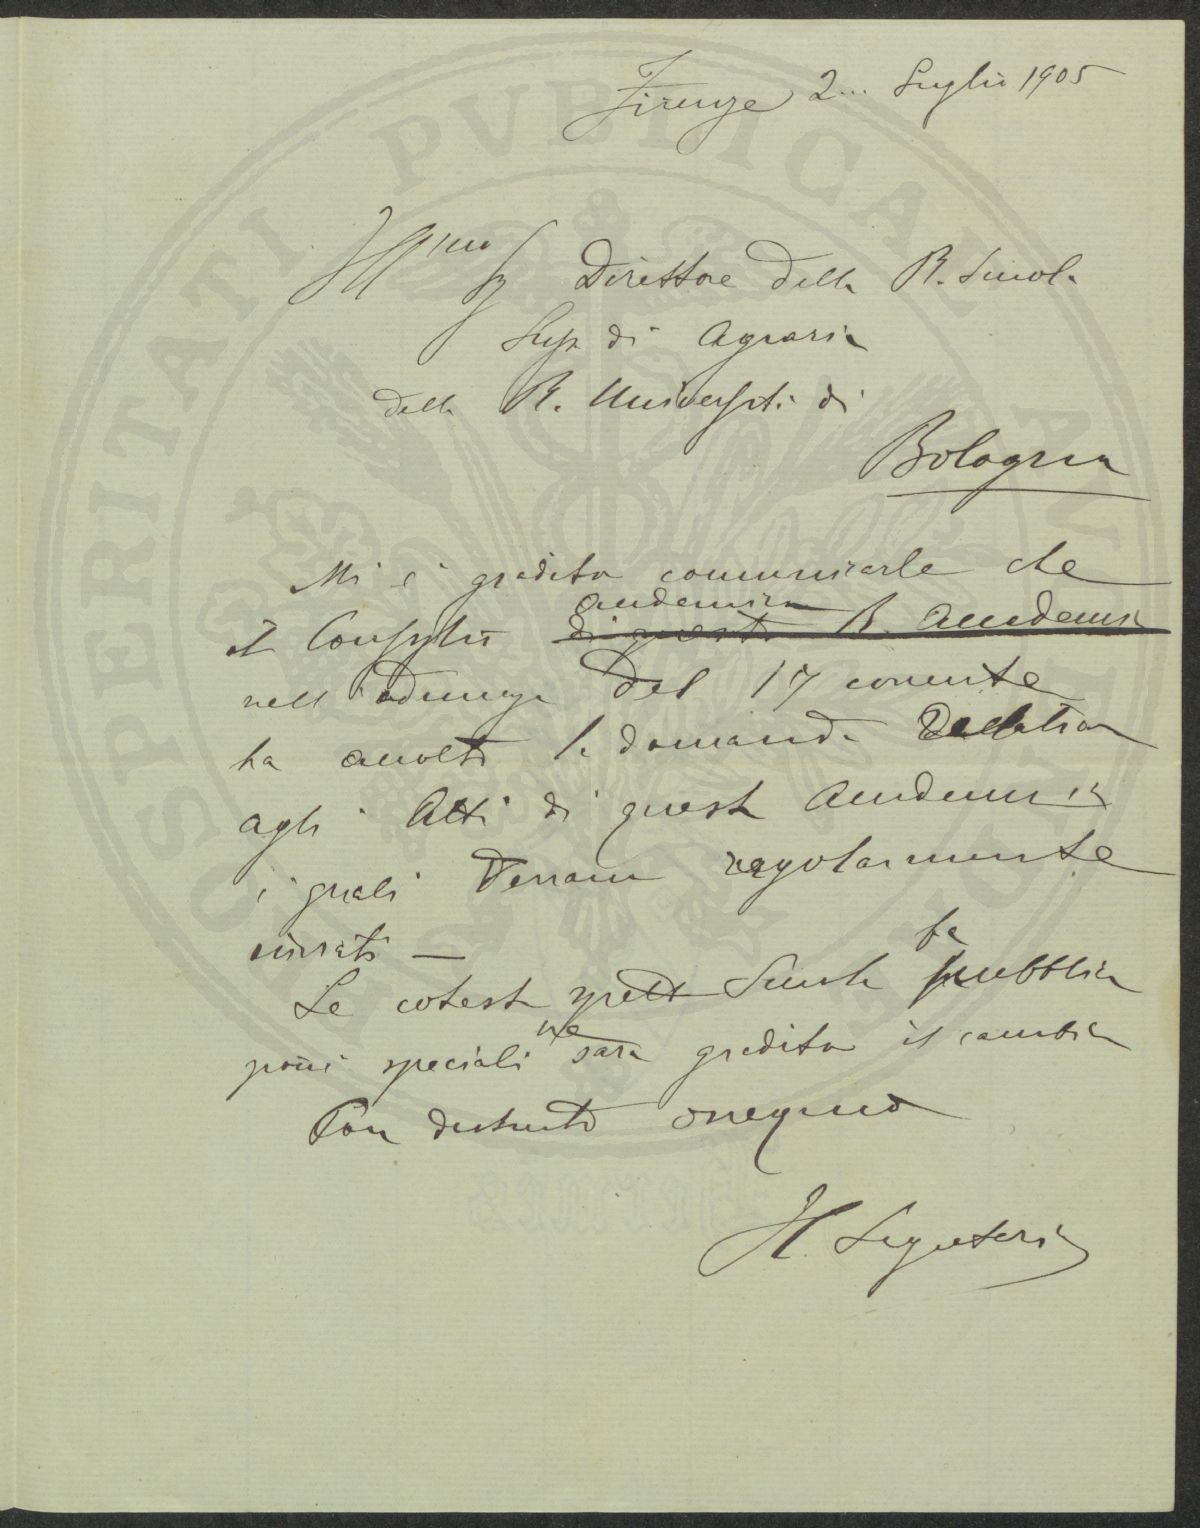 Firenze 2... Luglio 1905
Ill.mo Sig. Direttore della R. Scuola
Sup. di Agraria
della R. Università di
Bologna
Mi è gradito comunicarle che
il Consiglio accademico di questa R. Accademia
nell'adunanza del 17 corrente
ha accolto la domanda
agli Atti di questa Accademia
i quali verranno regolarmente
inviati —
Se cotesta spett Scuola fa pubblica
zioni speciali ne sarà gradito il cambio
Con distinto ossequio
Il Segretario
PROSPERITATI PVBLICAE AVGENDAE